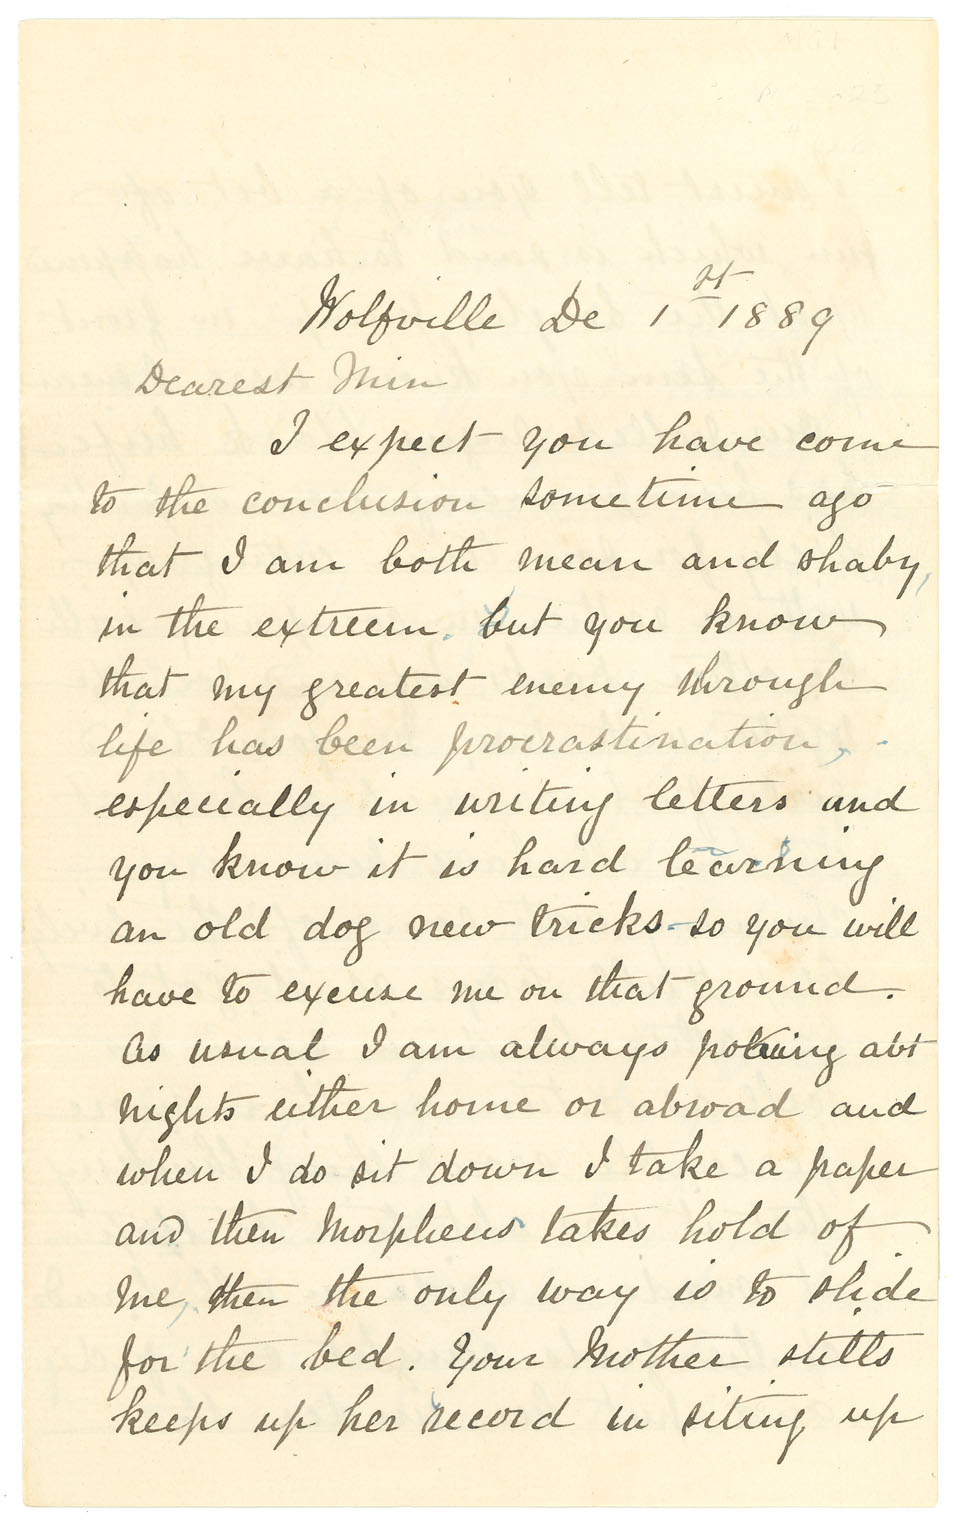 Wolfville De 1st 1889
Dearest Min
I expect you have come
to the conclusion sometime ago
that I am both mean and shaby,
in the extreem. but you know
that my greatest enemy through
life has been procrastination,
especially in writing letters and
you know it is hard learning
an old dog new tricks so you will
have to excuse me on that ground.
As usual I am always abt
nights either home or abroad and
when I do sit down I take a paper
and then Morpheus takes hold of
me, then the only way is to slide
for the bed. Your Mother stills
keeps up her record in siting up